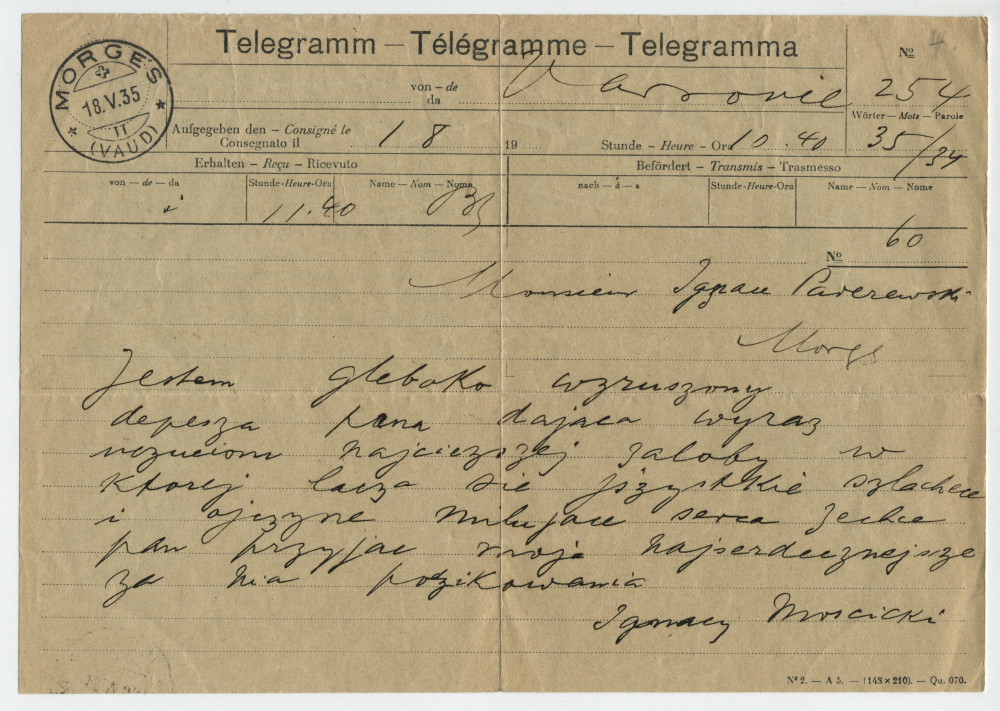 Telegramm – Télégramme – Telegramma
Nº
4
MORGES
18.V.35
II
(VAUD)
von – de
da
Varsovie
254
Wörter – Mots – Parole
Aufgegeben den – Consigné le
Consegnato il
18
19
Stunde – Heure – Ora
10.40
35/34
Erhalten – Reçu – Ricevuto
Befördert – Transmis – Trasmesso
von – de – da
Stunde-Heure-Ora
Name – Nom – Nome
nach – à – a
Stunde-Heure-Ora
Name – Nom – Nome
11.40
60
Nº
Monsieur Ignace Paderewski
Morges
Jestem gleboko wzruszony
depesza pana dajaca wyraz
uczuciom najciezszej zaloby w
ktorej lacza sie jszystkie szlachece
i ojczyzne milujace serca zechce
pan przyjac moje najserdeczniejsze
za nia podzikowania
Ignacy Moscicki
Nº 2. – A 5. – (148 × 210). – Qu. 070.